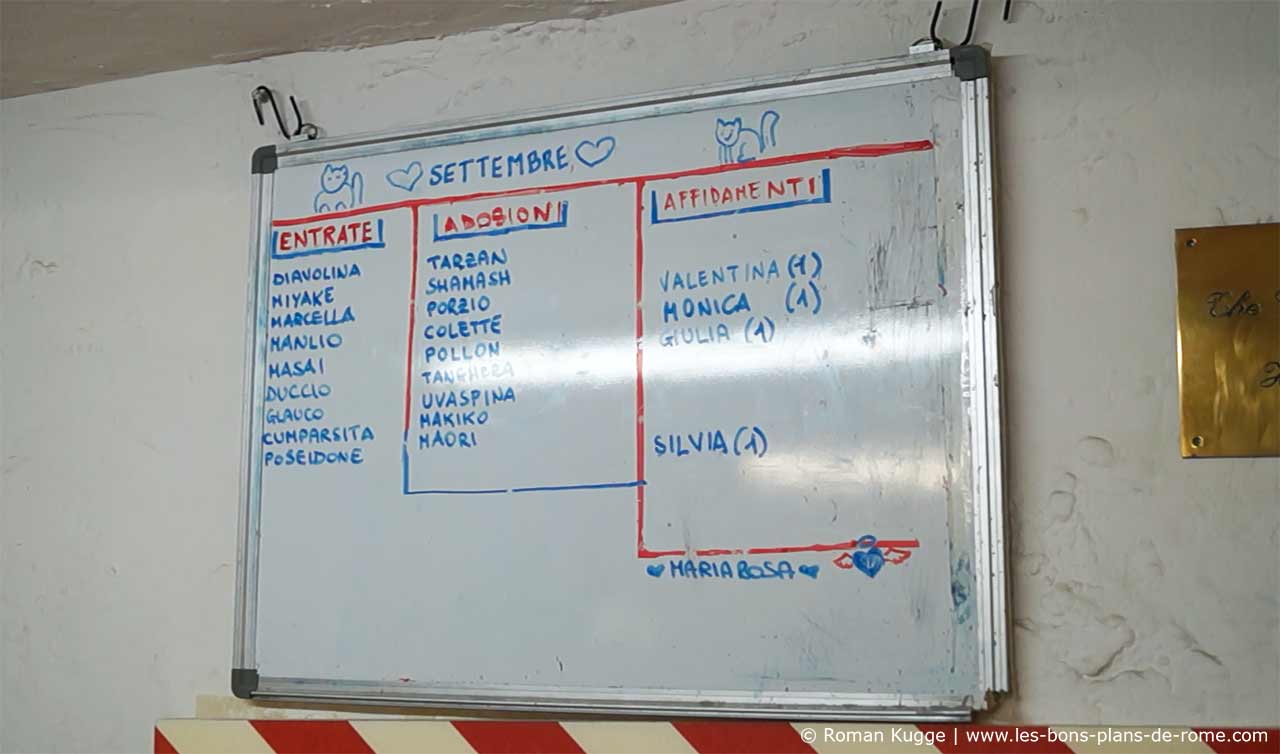 SETTEMBRE
ENTRATE
DIAVOLINA
MIYAKE
MARCELLA
MANLIO
MASAI
DUCCIO
GLAUCO
CUMPARSITA
POSEIDONE
ADOSIONI
TARZAN
SHAMASH
PORZIO
COLETTE
POLLON
TANGHERA
UVASPINA
MAKIKO
MAORI
AFFIDAMENTI
VALENTINA (1)
MONICA (1)
GIULIA (1)
SILVIA (1)
MARIA ROSA
The
© Roman Kugge | www.les-bons-plans-de-rome.com